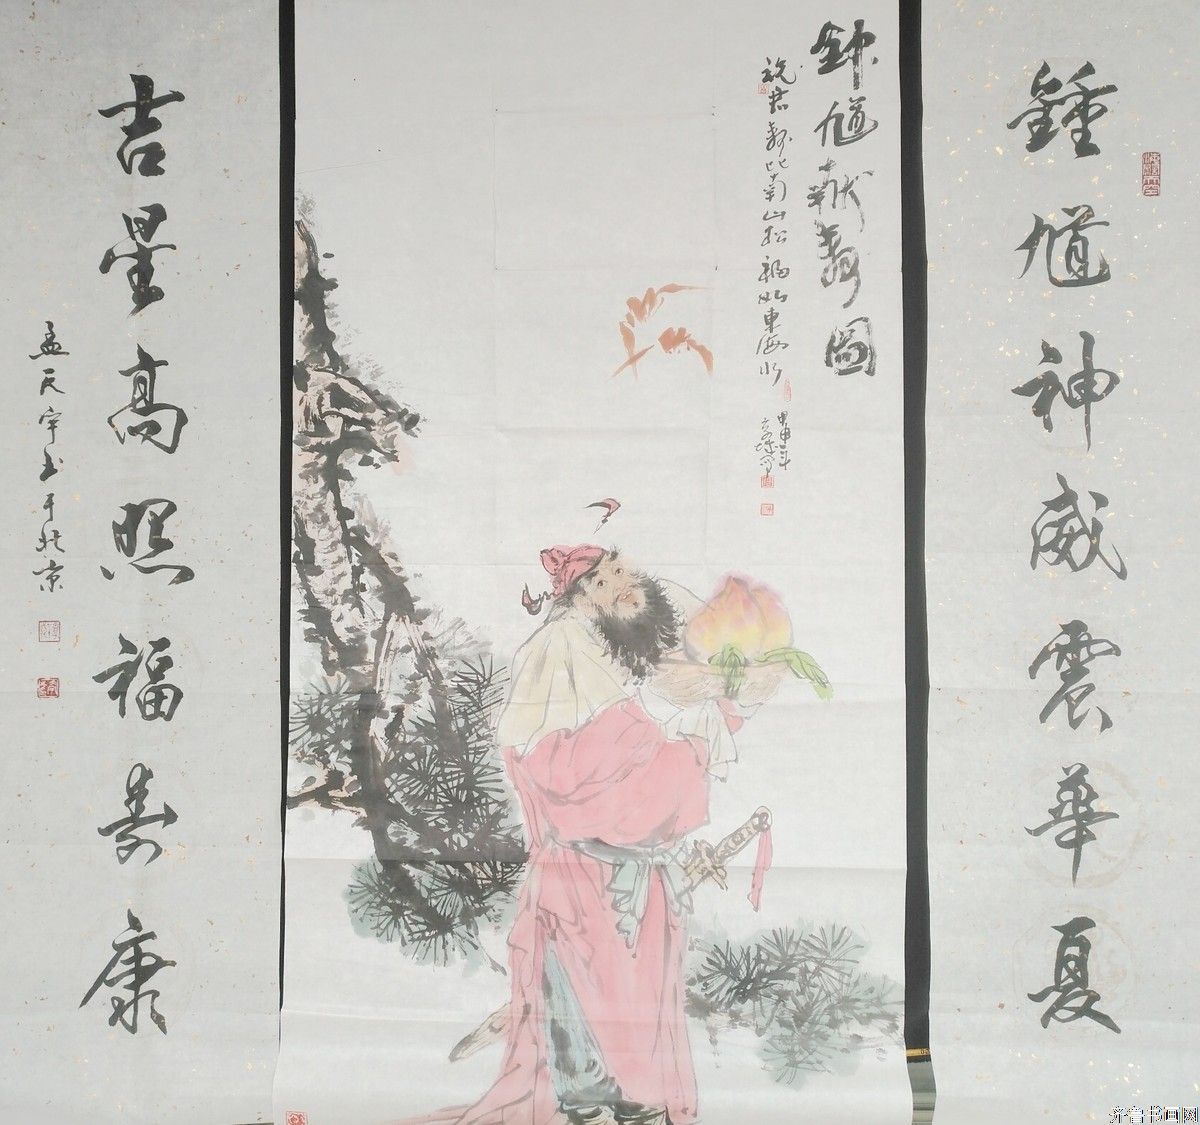 鍾馗神威震華夏
鈡馗献壽圖
祝君壽比南山松福如東海水
甲申年
吉星高照福寿康
孟天宇书于北京
齐鲁书画网